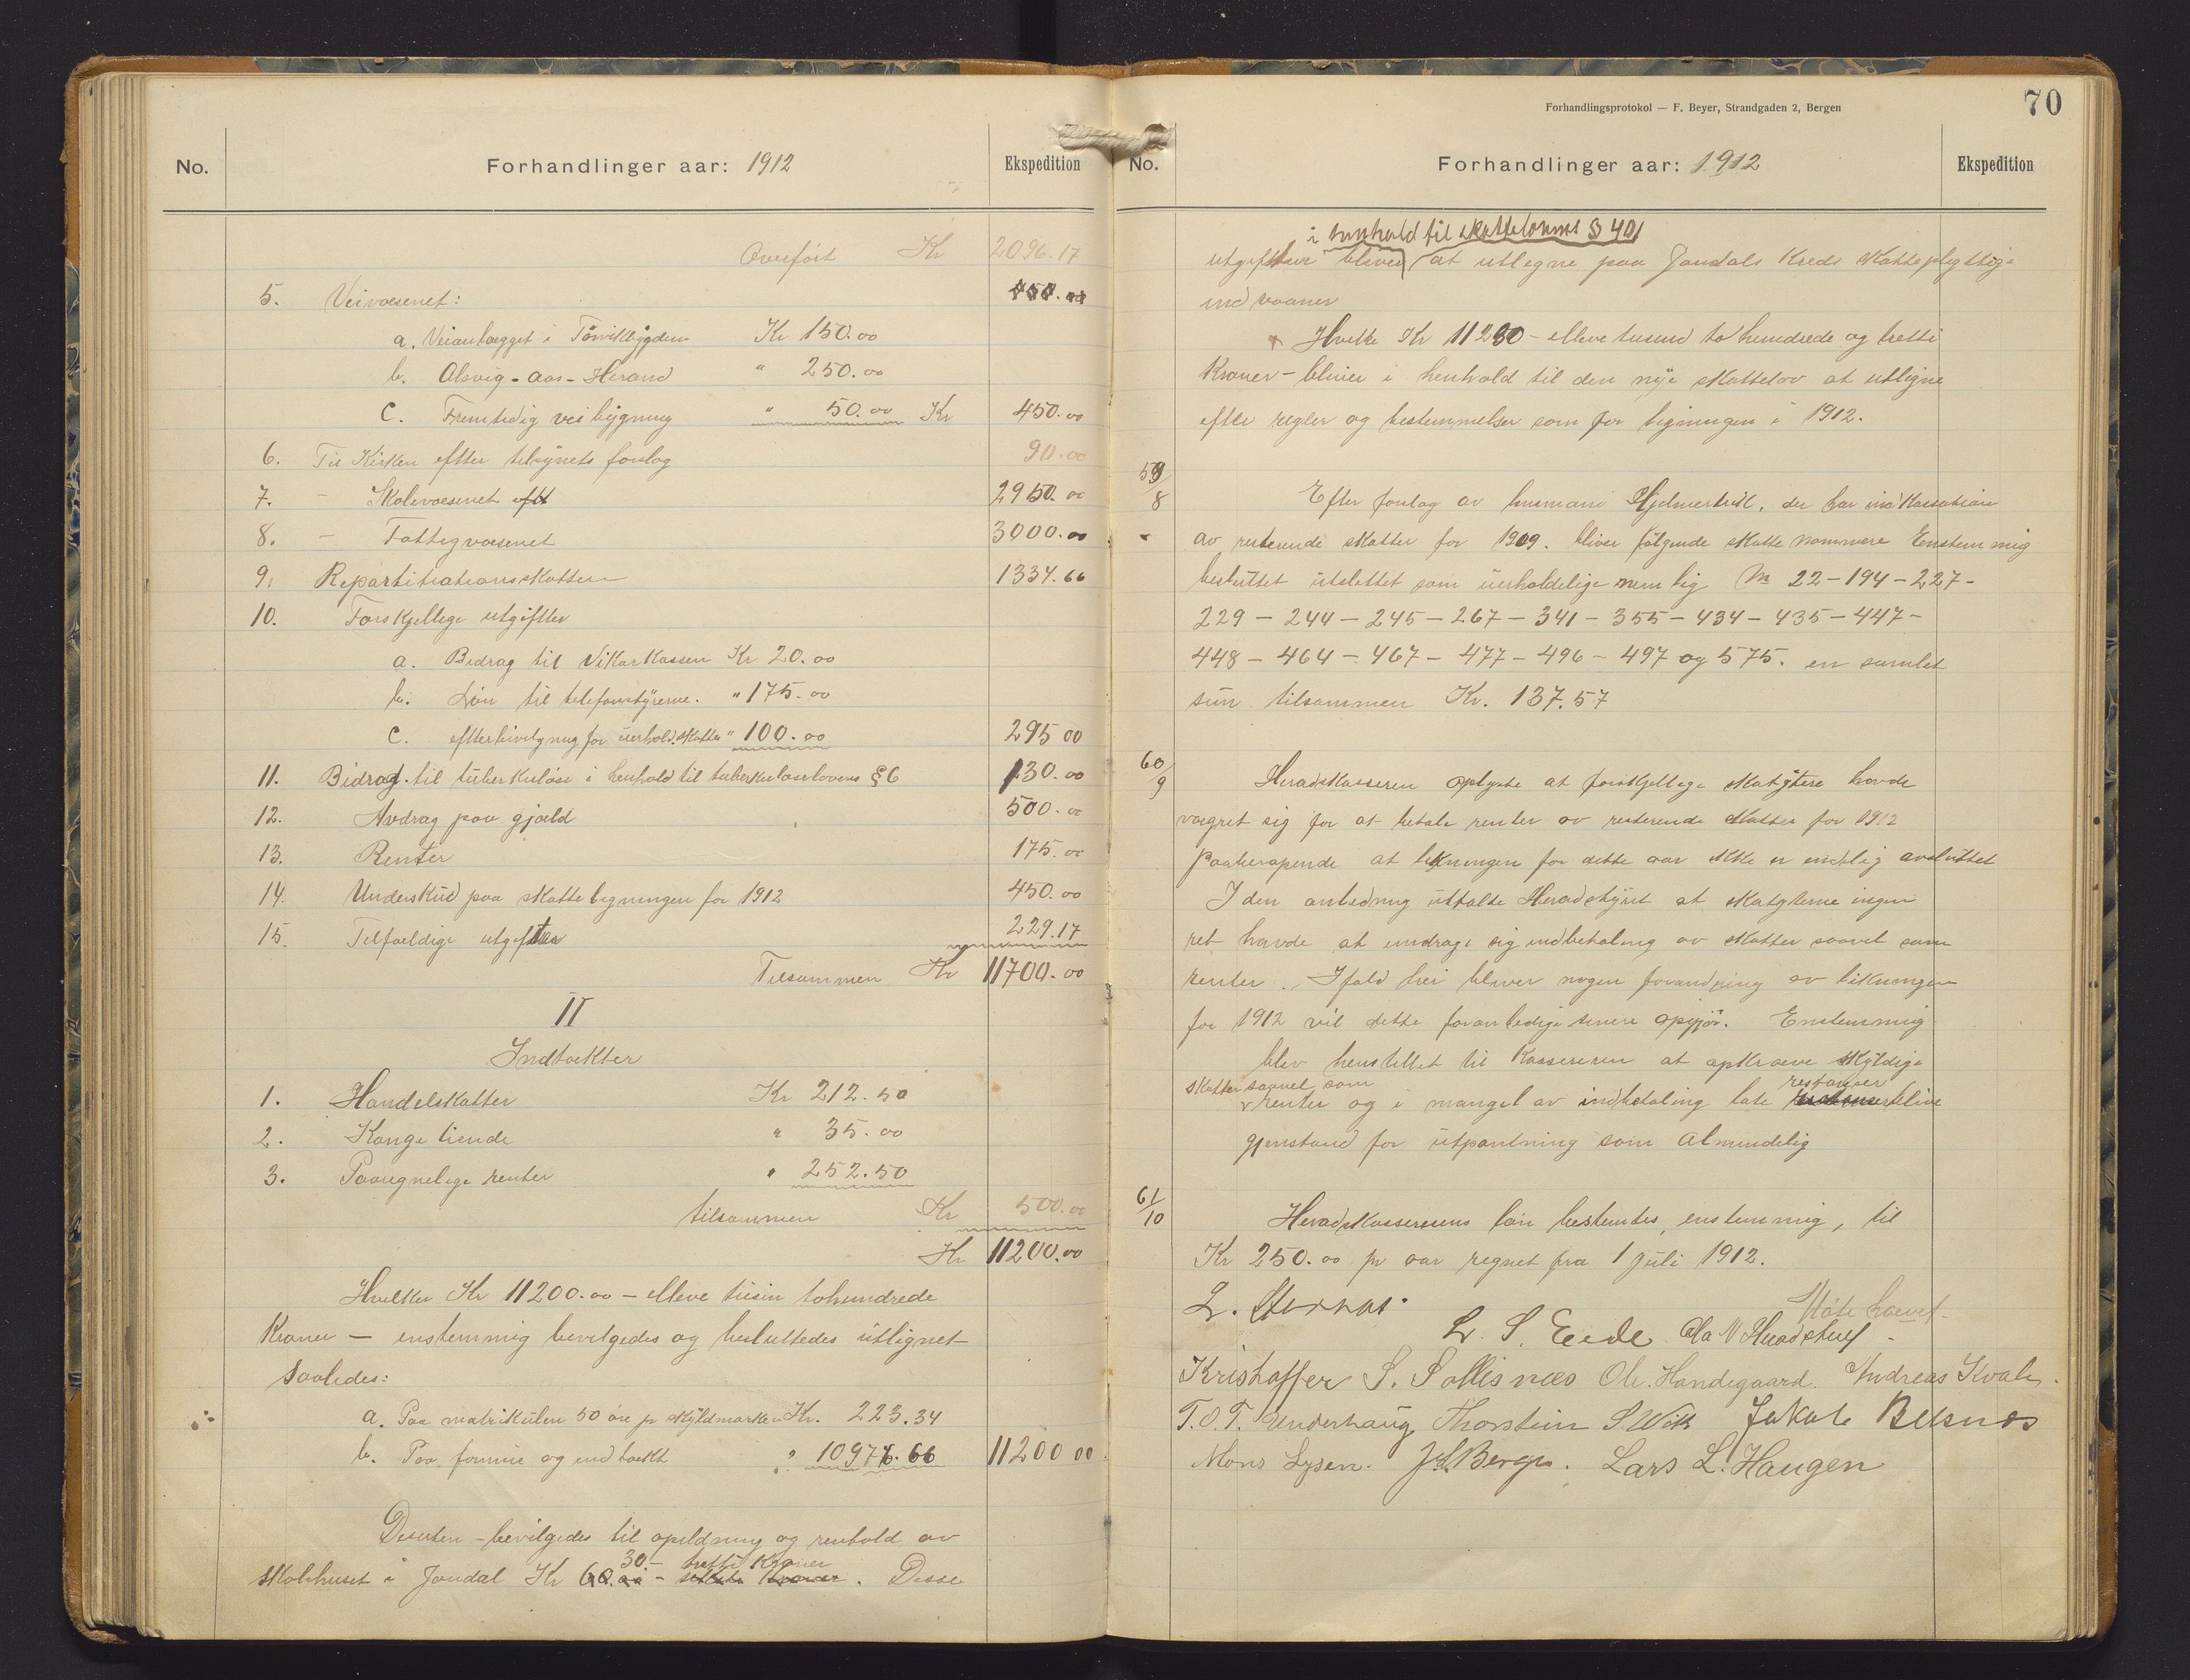 No.
Forhandlinger aar: 1912
Ekspedition
Overført Kr 2096.17
5. Veivæsenet:
a. Veianlægget i Tørvikbygden Kr 150.00
b. Alsvig - Aas - Herand " 250.00
c. Fremtidig vei bygning " 50.00 Kr 450.00
6. Til Kirken efter tilsynets forslag 90.00
7. - Skolevæsenet 2950.00
8. - Fattigvæsenet 3000.00
9. Repartitiationsskatten 1334.66
10. Forskjellige utgifter
a. Bidrag til Vikarkassen Kr 20.00
b. Løn til telefonstyrerne. " 175.00
c. efterbevilgning for uerhold. skatter " 100.00 295 00
11. Bidrag til tuberkuløse i henhold til tuberkuloselovens § 6 130.00
12. Avdrag paa gjæld 500.00
13. Renter 175.00
14. Underskud paa skatteligningen for 1912 450.00
15. Tilfældige utgifter 229.17
Tilsammen Kr 11700.00
II
Indtækter
1. Handelskatter Kr 212.50
2. Konge tiende " 35.00
3. Paaregnelige renter " 252.50
tilsammen Kr 500.00
Kr 11200.00
Hvilke Kr 11200.00 - elleve tusin tohundrede
Kroner - enstemmig bevilgedes og besluttedes utlignet
saaledes:
a. Paa matrikulen 50 øre pr skyldmarken Kr. 223.34
b. Paa formue og indtækt " 10976.66 11200 00
Desuten - bevilgedes til opildning og renhold av
30 - tretti Kroner
skolehuset i Jondal Kr 60.00 - Kroner. Disse
Forhandlingsprotokol — F. Beyer, Strandgaden 2, Bergen
70
No.
Forhandlinger aar: 1912
Ekspedition
i henhold til skattelovens § 401
utgifter bliver at utlegne paa Jondals Kreds skattepligtige
indvaaner
Hvilke Kr 11230 - elleve tusind to hundrede og tretti
Kroner - bliver i henhold til den nye skattelov at utligne
efter regler og bestemmelser som for ligningen i 1912.
59/8
Efter forslag av lensmand Hjelmervik, der har indkassation
av resterende skatter for 1909. bliver følgende skatte nommere Enstemmig
besluttet utslettet som uerholdelige nemlig No 22 - 194 - 227 -
229 - 244 - 245 - 267 - 341 - 355 - 434 - 435 - 447 -
448 - 464 - 467 - 477 - 496 - 497 og 575. en samlet
sum tilsammen Kr. 137.57
60/9
Heradskasseren oplyste at forskjellige skatytere havde
vægret sig for at betale renter av resterende skatter for 1912
paaberopende at likningen for dette aar ikke er endelig avsluttet
I den anledning uttalte Heradstyret at skatyterne ingen
ret havde at undrage sig indbetaling av skatter saavel som
renter. Ifald her bliver nogen forandring av likningen
for 1912 vil dette foranledige senere opgjør. Enstemmig
blev henstillet til Kassereren at opkræve skyldige
skatter saavel som
renter og i mangel av indbetaling late restanser blive
gjenstand for utpantning som almindelig
61/10
Heradskassererens løn bestemtes, enstemmig, til
Kr 250.00 pr aar regnet fra 1 juli 1912.
Møte hævet.
L. S. Eide
Kristoffer S. Sollisnæs Ole Handegaard. Andreas Kvale.
T. O. T. Underhaug Thorstein S Vik Jakob Belsnes
Mons Lysen. J. S. Berge. Lars L. Haugen